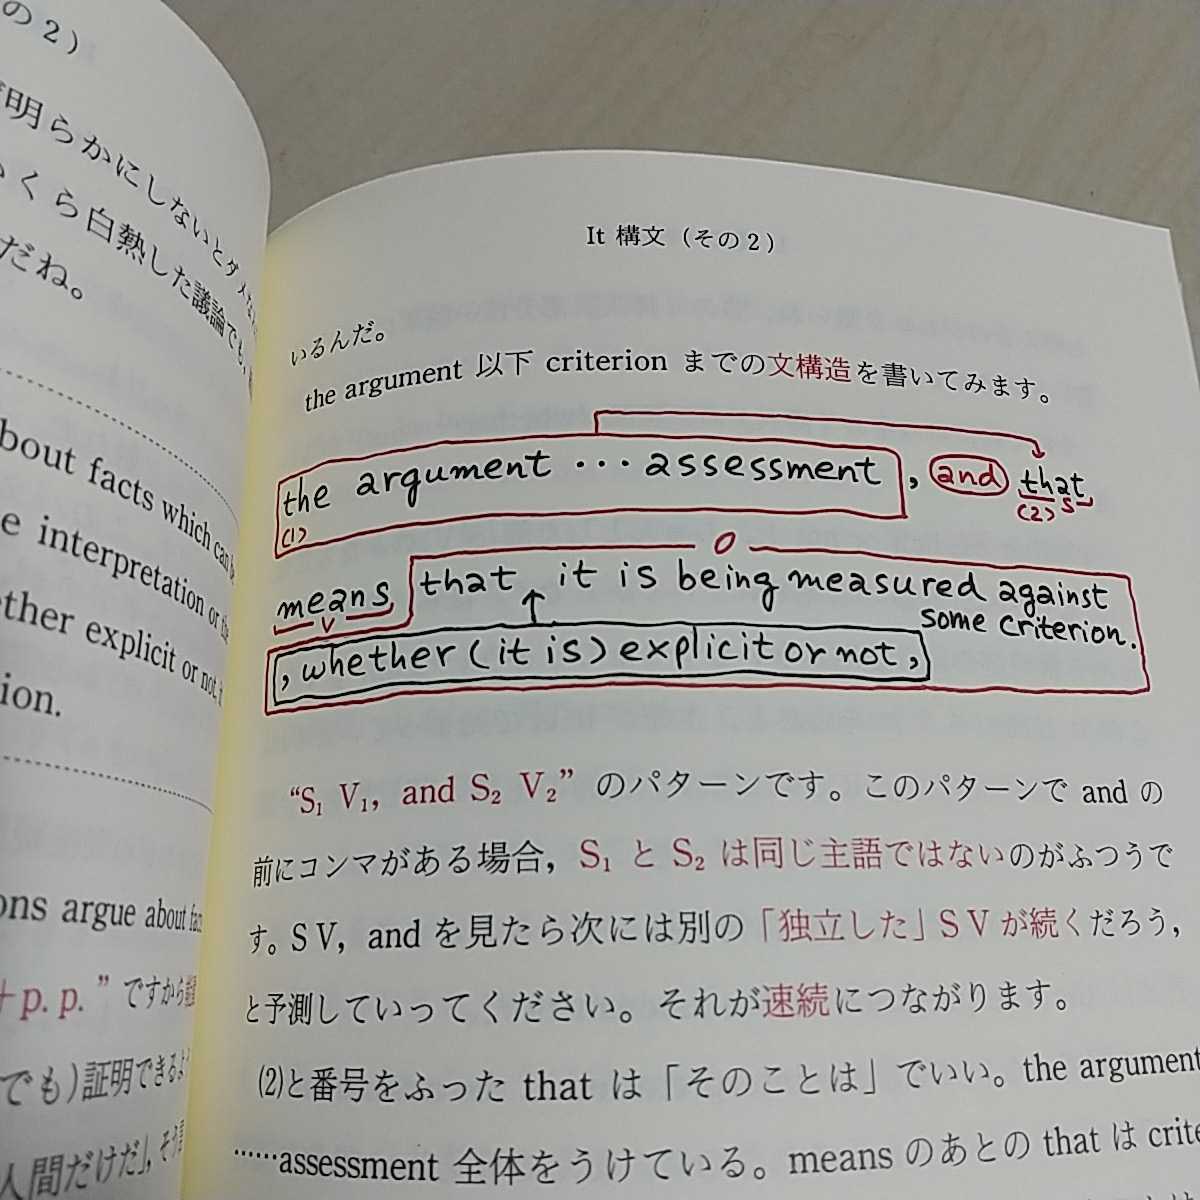 の2）
明らかにしないとダメな
くら白熱した議論でも，
だね。
bout facts which can be
e interpretation or the
ether explicit or not, it
ion.
ons argue about
＋p. p.” ですから
でも）証明できるよ
人間だけだ」，そう
It 構文（その2）
いるんだ。
the argument 以下 criterion までの文構造を書いてみます。
the argument ・・・ assessment , and that
(1) (2) S
O
means that it is being measured against
V some criterion.
, whether (it is) explicit or not,
“S₁ V₁，and S₂ V₂” のパターンです。このパターンで and の
前にコンマがある場合，S₁ と S₂ は同じ主語ではないのがふつうで
す。S V，and を見たら次には別の「独立した」S V が続くだろう，
と予測していってください。それが速続につながります。
(2)と番号をふった that は「そのことは」でいい。the argument
……assessment 全体をうけている。means のあとの that は